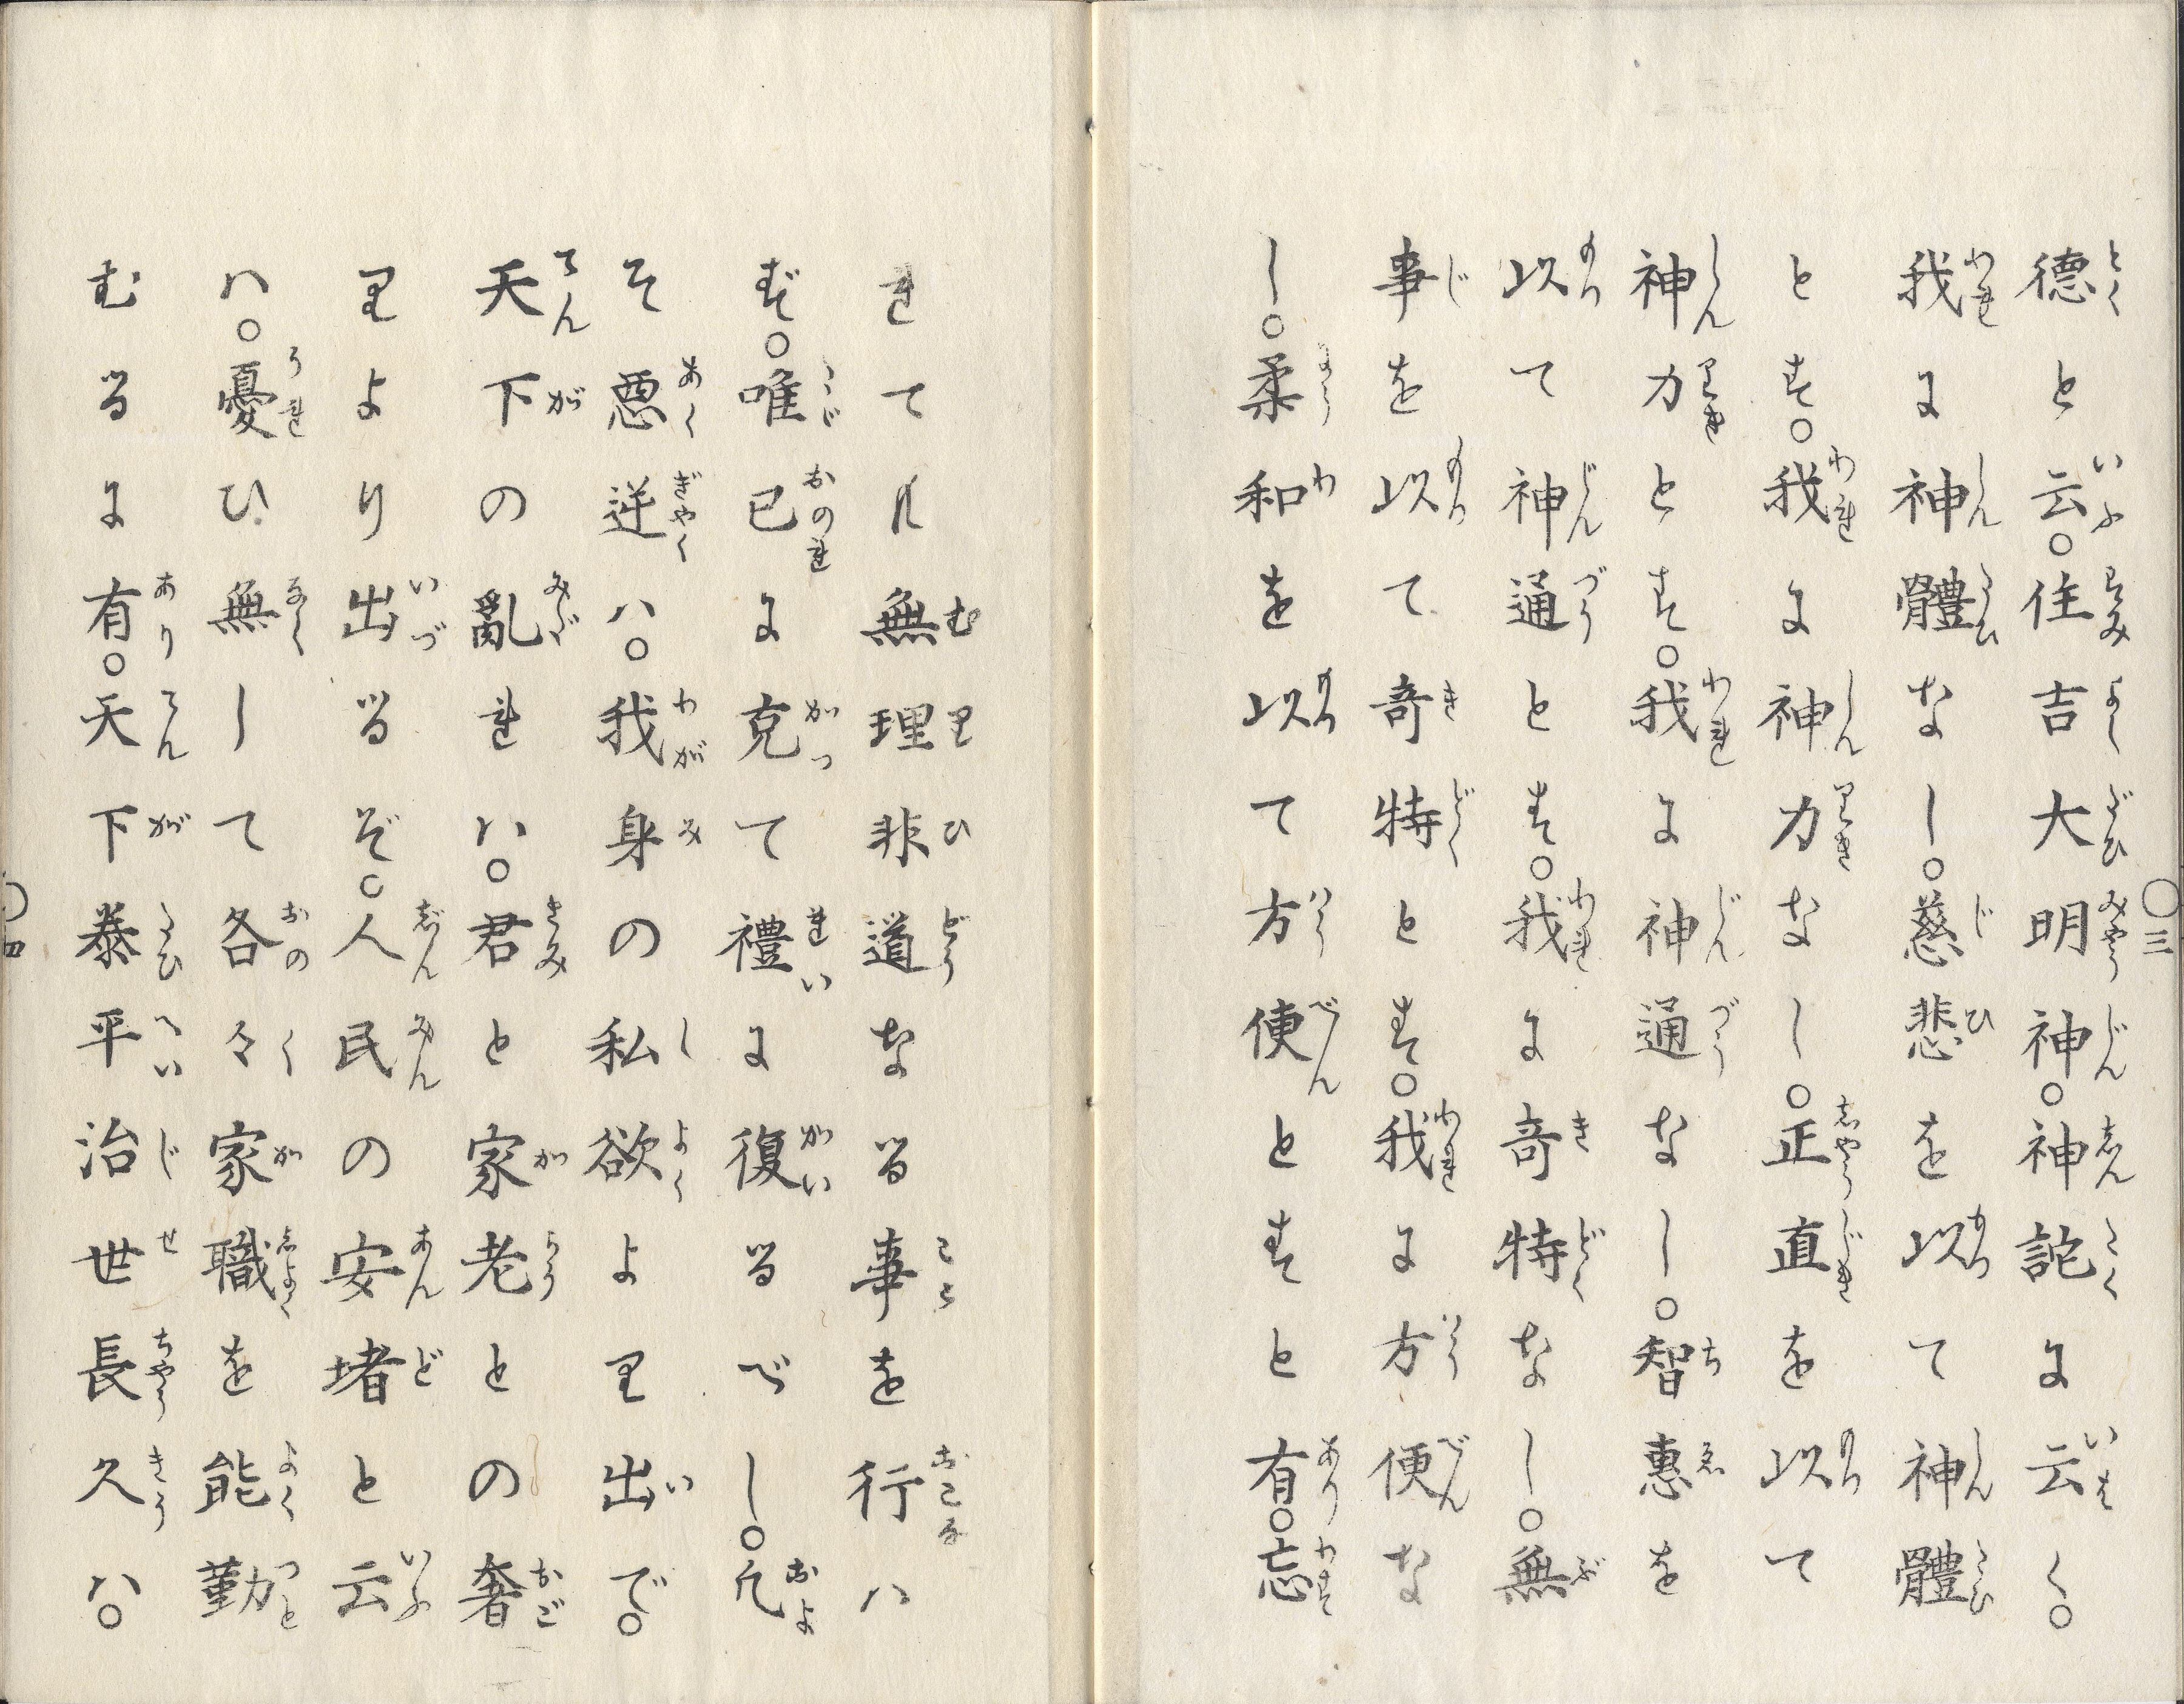 〇三
德と云。住吉大明神。神詫に云く。
我に神體なし。慈悲を以て神體
とす。我に神力なし。正直を以て
神力とす。我に神通なし。智惠を
以て神通とす。我に奇特なし。無
事を以て奇特とす。我に方便な
し。柔和を以て方便とすと有。忘
れても無理非道なる事を行ハ
ず。唯己に克て禮に復るべし。凡
そ悪逆ハ。我身の私欲より出で。
天下の亂れハ。君と家老との奢
りより出るぞ。人民の安堵と云
ハ。憂ひ無して各々家職を能勤
むるに有。天下泰平治世長久ハ。
〇四